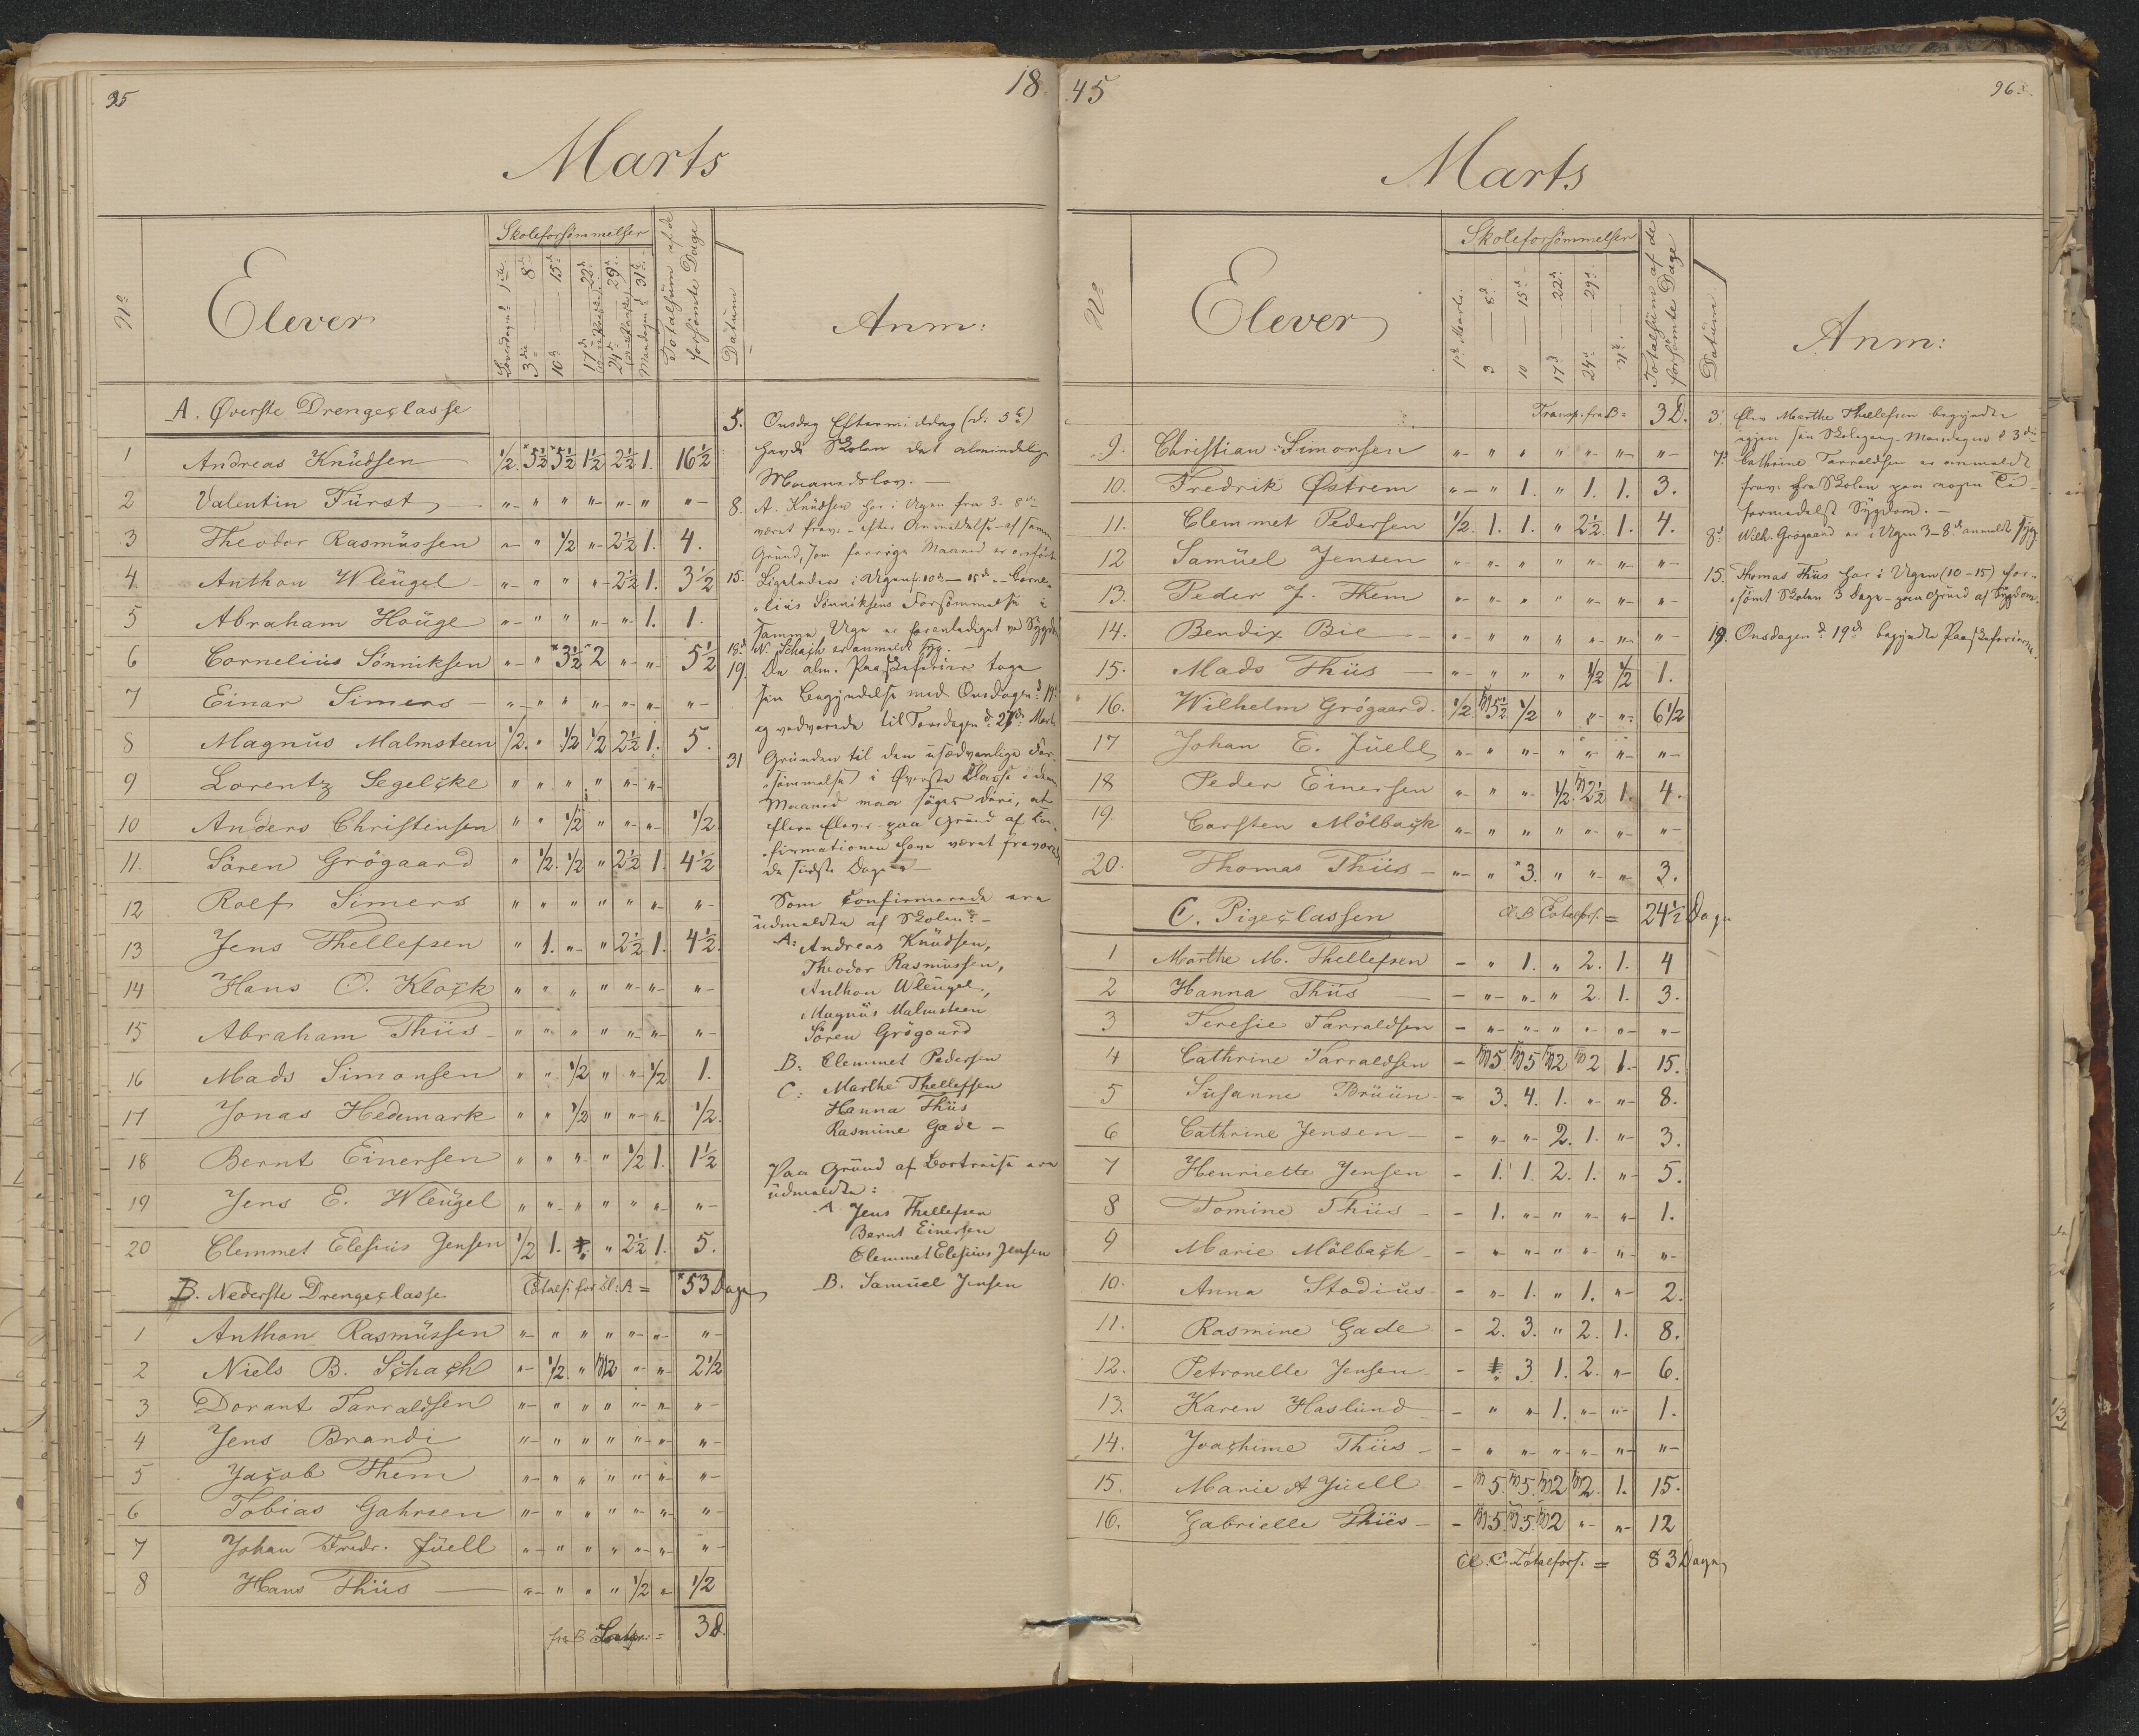 95
18
Marts
Nº
Elever
Skoleforsömmelser
Löverdagen d. 1ste
3die — 8de
10de — 15de
17de — 22de
24de — 29de
Mandagen d. 31te
Totalsüm af de forsömte Dage
Datum
Anm:
A. Øverste Drengeclasse
1 Andreas Knüdsen ½. *5½ *5½ 1½ 2½ 1. 16½
2 Valentin Fürst " " " " " " "
3 Theodor Rasmüssen " " ½ " 2½ 1. 4.
4 Anthon Wleügel " " " " 2½ 1. 3½
5 Abraham Houge " " " " " 1. 1.
6 Cornelius Sönniksen " " *3½ *2 " " 5½
7 Einar Simers " " " " " " "
8 Magnüs Malmsteen ½. " ½ ½ 2½ 1. 5.
9 Lorentz Segelcke " " " " " "
10 Anders Christensen " " ½ " " " ½
11. Sören Grögaard " ½. ½ " 2½ 1. 4½
12 Rolf Simers " " " " " " "
13 Jens Thellefsen " 1. " " 2½ 1. 4½
14 Hans O. Klock " " " " " " "
15 Abraham Thiis " " " " " " "
16 Mads Simonsen " " ½ " " ½ 1.
17 Jonas Hedemark " " ½ " " " ½.
18 Bernt Einersen " " " " ½ 1. 1½
19 Jens E. Wleügel " " " " " " "
20 Clemmet Elesius Jensen ½ 1. " " 2½ 1. 5.
B. Nederste Drengeclasse Totalf. for Cl: A = *53 Dage
1 Anthon Rasmüssen " " " " " " "
2 Niels B. Schach " ½. " 2 " " 2½
3 Dorant Tarraldsen " " " " " " "
4 Jens Brandi " " " " " " "
5 Jacob Them " " " " " " "
6 Tobias Gahrsen " " " " " " "
7 Johan Fredr. Jüell " " " " " " "
8 Hans Thiis " " " " ½ " ½
fra B = 3 D.
5. Onsdag Eftermiddag (d. 5te)
havde Skolen det almindelige
Maanedslov. —
8. A. Knüdsen har i Ugen fra 3-8de
været frav. - efter Anmeldelse - af samme
Gründ, som forrige Maaned er anført
15. Ligeledes i Ugen fr. 10de — 15de — Corne-
lius Sönniksens Forsömmelse i
samme Uge er foranlediget ved Sygd.
18de N. Schach er anmeldt syg. —
19. De alm. Paaskeferier toge
sin Begyndelse med Onsdagen d. 19de
og vedvarede til Torsdagen d. 27de Marts
31 Gründen til den üsædvanlige For-
sömmelse i Øverste Classe i denne
Maaned maa söges deri, at
flere Elever - paa Gründ af Con-
firmationen have været fraværende
de sidste Dage —
Som Confirmerede ere
üdmeldte af Skolen: —
A: Andreas Knüdsen,
Theodor Rasmüssen,
Anthon Wleügel,
Magnüs Malmsteen
Sören Grögaard
B: Clemmet Pedersen
C: Marthe Thellefsen
Hanna Thiis
Rasmine Gade —
Paa Gründ af Bortreise ere
üdmeldte:
A. Jens Thellefsen
Bernt Einersen
Clemmet Elesius Jensen
B. Samüel Jensen
45
96.
Marts
Nº
Elever
Skoleforsömmelser
1ste Marts.
3 — 8de
10 — 15de
17de — 22de
24de — 29de
31te
Totalsüm af de forsömte Dage
Datüm
Anm:
Transp. fra B = 3 D.
9. Christian Simonsen " " " " " " "
10. Fredrik Østrem " " 1. " 1. 1. 3.
11. Clemmet Pedersen ½. 1. 1. " 2½ 1. 4.
12 Samüel Jensen " " " " " " "
13. Peder J. Them " " " " " " "
14. Bendix Bie " " " " " " "
15. Mads Thiis " " " " ½ ½ 1.
16. Wilhelm Grögaard ½. 5½ ½ " " " 6½
17 Johan E. Jüell " " " " " " "
18 Peder Einersen " " " ½. 2½ 1. 4.
19. Carsten Mölback " " " " " " "
20. Thomas Thiis " " *3. " " " 3.
C. Pigeclassen Cl. B Totalfors. = 24½ Dage
1 Marthe M. Thellefsen - " 1. " 2. 1. 4
2 Hanna Thiis - " " " 2. 1. 3.
3 Teresie Tarraldsen - " " " " " "
4 Cathrine Tarraldsen - 5. 5 2 2 1. 15.
5 Susanne Brüün - 3. 4. 1. " " 8.
6 Cathrine Jensen - " " 2. 1. " 3.
7 Henriette Jensen - 1. 1. 2. 1. " 5.
8 Tomine Thiis - 1. " " " " 1.
9 Marie Mölbach - " " " " " "
10. Anna Stodiüs - " 1. " 1. " 2.
11. Rasmine Gade - 2. 3. " 2. 1. 8.
12. Petronelle Jensen - " 3. 1. 2. " 6.
13. Karen Haslünd - " " 1. " " 1.
14. Joachime Thiis - " " " " " "
15. Marie A Jüell - 5. 5. 2 2. 1. 15.
16. Gabrielle Thiis - 5. 5. 2 " " 12
Cl. C. Totalfors. = 83 Dage
3. Elev Marthe Thellefsen begyndte
igjen sin Skolegang Mandagen d. 3die
7de Cathrine Tarraldsen er anmeldt
frav. fra Skolen paa nogen Tid
formedelst Sygdom. —
8de Wilh. Grögaard er i Ugen 3-8de anmeldt syg.
15. Thomas Thiis har i Ugen (10-15) for-
sömt Skolen 3 Dage - paa Gründ af Sygdom.
19. Onsdagen d. 19de begyndte Paaskeferierne.